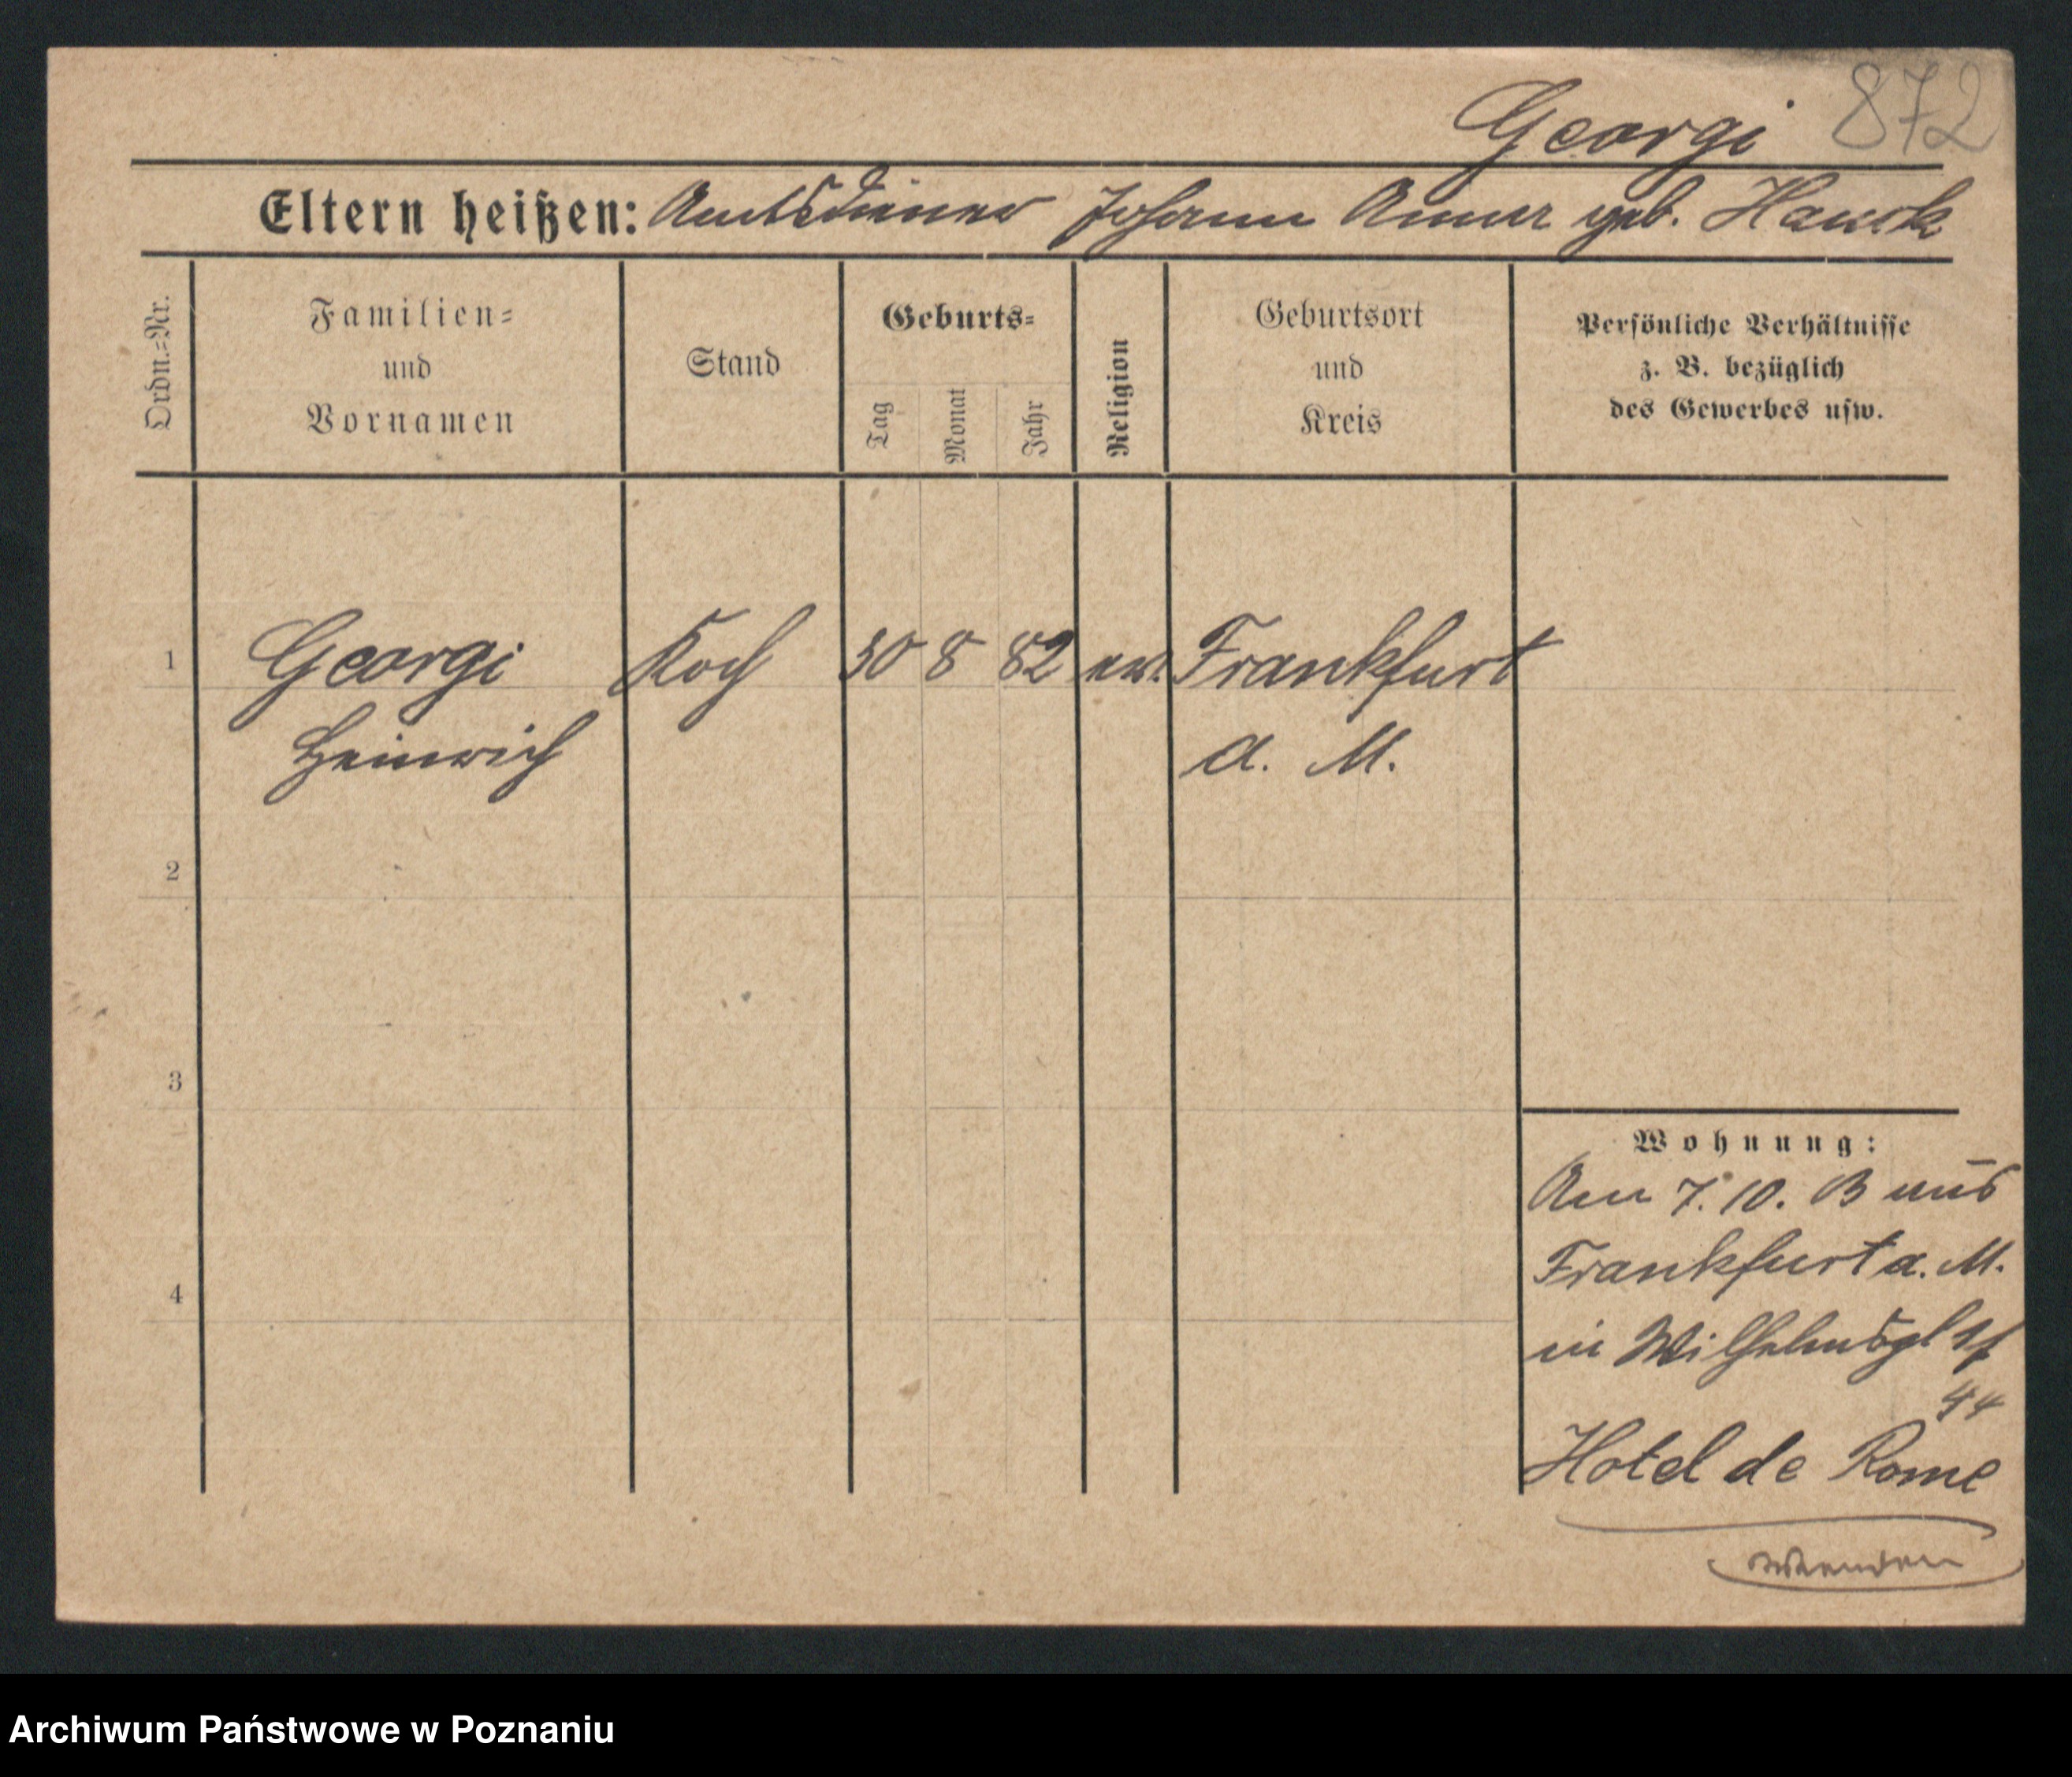 Georgi 872
Eltern heißen: Amtsdiener Johann Anna geb. Hauck
Ordn.=Nr.
Familien=
und
Vornamen
Stand
Geburts=
Tag
Monat
Jahr
Religion
Geburtsort
und
Kreis
Persönliche Verhältnisse
z. B. bezüglich
des Gewerbes usw.
1 Georgi Koch 30 8 82 ev. Frankfurt
Heinrich a. M.
2
3
4
Wohnung:
Am 7. 10. 13 aus
Frankfurt a. M.
in Wilhelmspl
44
Hotel de Rome
Wenden
Archiwum Państwowe w Poznaniu